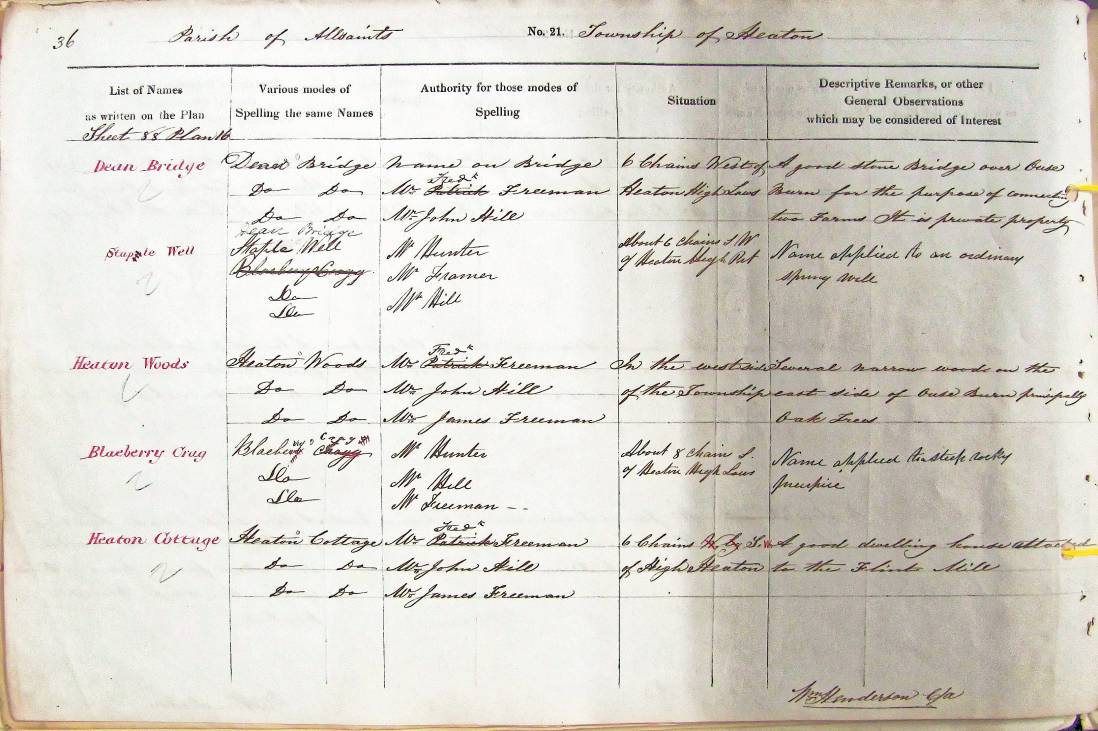 36 Parish of Allsaints No. 21. Township of Heaton
List of Names
as written on the Plan
Various modes of
Spelling the same Names
Authority for those modes of
Spelling
Situation
Descriptive Remarks, or other
General Observations
which may be considered of Interest
Sheet 88 Plan 16
Dean Bridge
Dean Bridge
Name on Bridge
6 Chains West of
A good stone Bridge over Ouse
Do Do
Fredk
Mr Patrick Freeman
Heaton High Laws
Burn for the purpose of connecting
Do Do
Mr John Hill
two Farms It is private property
Dean Bridge
Stapple Well
Staple Well
Mr Hunter
About 6 chains S.W
of Heaton High
Name applied to an ordinary
Blaebery Cragg
Mr Framer
spring well
Do
Do
Mr Hill
Heaton Woods
Heaton Woods
Fredk
Mr Patrick Freeman
In the west side
Several narrow woods on the
Do Do
Mr John Hill
of the Township
east side of Ouse Burn principally
Do Do
Mr James Freeman
Oak Trees
Blaeberry Crag
Blaebery Cragg
Crag
Mr Hunter
About 8 chain S.
of Heaton High Laws
Name applied to a steep rocky
Do
Mr Hill
precipice
Do
Mr Freeman - -
Heaton Cottage
Heaton Cottage
Fredk
Mr Patrick Freeman
6 Chains W. by S.
A good dwelling house attached
Do Do
Mr John Hill
of High Heaton
to the Flint Mill
Do Do
Mr James Freeman
Wm Henderson C/a